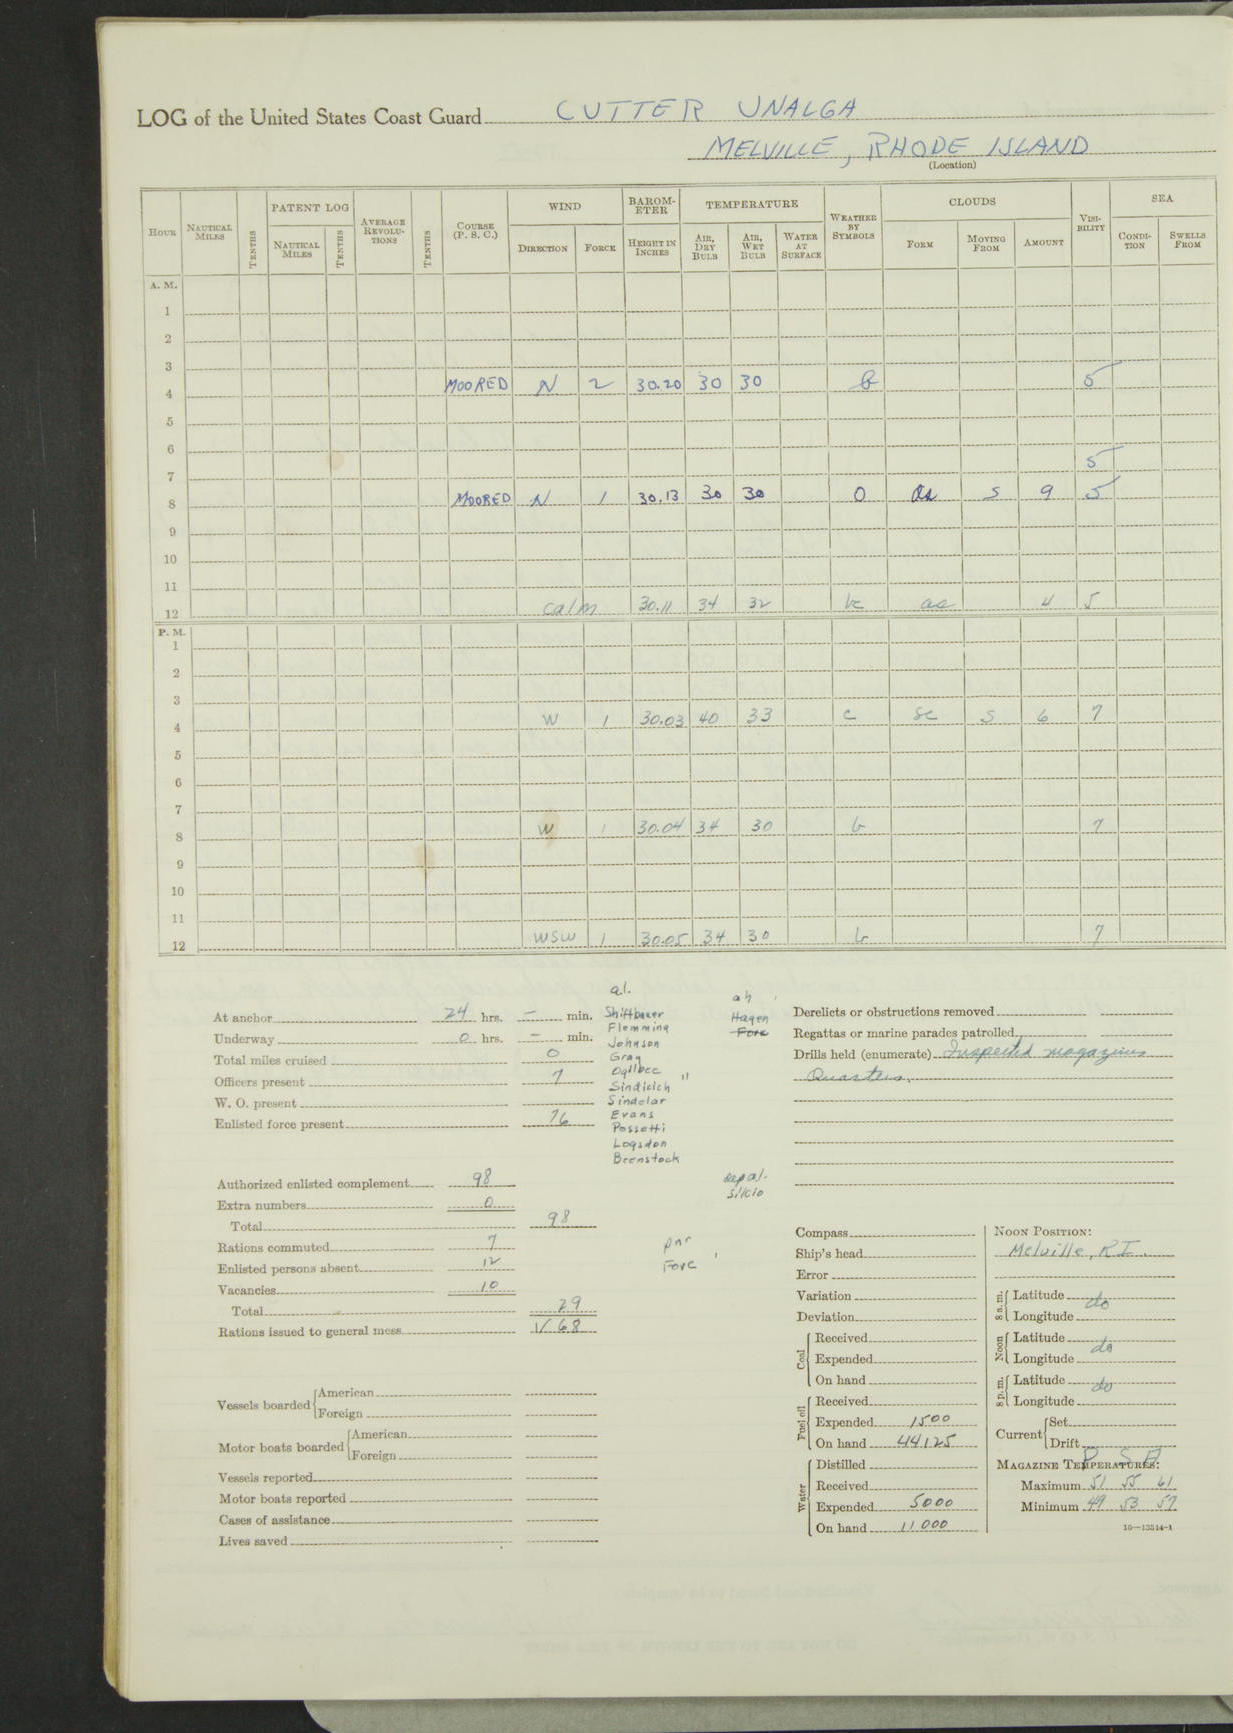 LOG of the United States Coast Guard CUTTER UNALGA
MELVILLE, RHODE ISLAND
(Location)
HOUR NAUTICAL MILES TENTHS PATENT LOG NAUTICAL MILES TENTHS AVERAGE REVOLUTIONS TENTHS COURSE (P. S. C.) WIND DIRECTION FORCE BAROMETER HEIGHT IN INCHES TEMPERATURE AIR, DRY BULB AIR, WET BULB WATER AT SURFACE WEATHER BY SYMBOLS CLOUDS FORM MOVING FROM AMOUNT VISIBILITY SEA CONDITION SWELLS FROM
A. M.
1
2
3
4 MOORED N 2 30.20 30 30 b 5
5
6
7 5
8 MOORED N 1 30.13 30 30 O as S 9 5
9
10
11
12 calm 30.11 34 32 bc ac 4 5
P. M.
1
2
3
4 W 1 30.03 40 33 c sc S 6 7
5
6
7
8 W 1 30.04 34 30 b 7
9
10
11
12 WSW 1 30.05 34 30 b 7
At anchor 24 hrs. — min.
Underway 0 hrs. — min.
Total miles cruised 0
Officers present 7
W. O. present
Enlisted force present 76
Authorized enlisted complement 98
Extra numbers 0
Total 98
Rations commuted 7
Enlisted persons absent 12
Vacancies 10
Total 29
Rations issued to general mess 68
Vessels boarded American
Foreign
Motor boats boarded American
Foreign
Vessels reported
Motor boats reported
Cases of assistance
Lives saved
al.
Shiffbauer
Flemming
Johnson
Gray
Ogilbee
Sindicich "
Sindelar
Evans
Possetti
Logsdon
Beenstock
ah
Hagen
Fore
sep al.
Silcio
pnr
Fore
Derelicts or obstructions removed
Regattas or marine parades patrolled
Drills held (enumerate) Inspected magazines
Quarters.
Compass
Ship's head
Error
Variation
Deviation
Coal Received
Expended
On hand
Fuel oil Received
Expended 1500
On hand 44125
Water Distilled
Received
Expended 5000
On hand 11000
NOON POSITION:
Melville, R I.
8 a.m. Latitude
Longitude do
Noon Latitude
Longitude do
8 p.m. Latitude
Longitude do
Current Set
Drift
MAGAZINE TEMPERATURES: P S A
Maximum 51 55 61
Minimum 49 53 57
16—13514-1